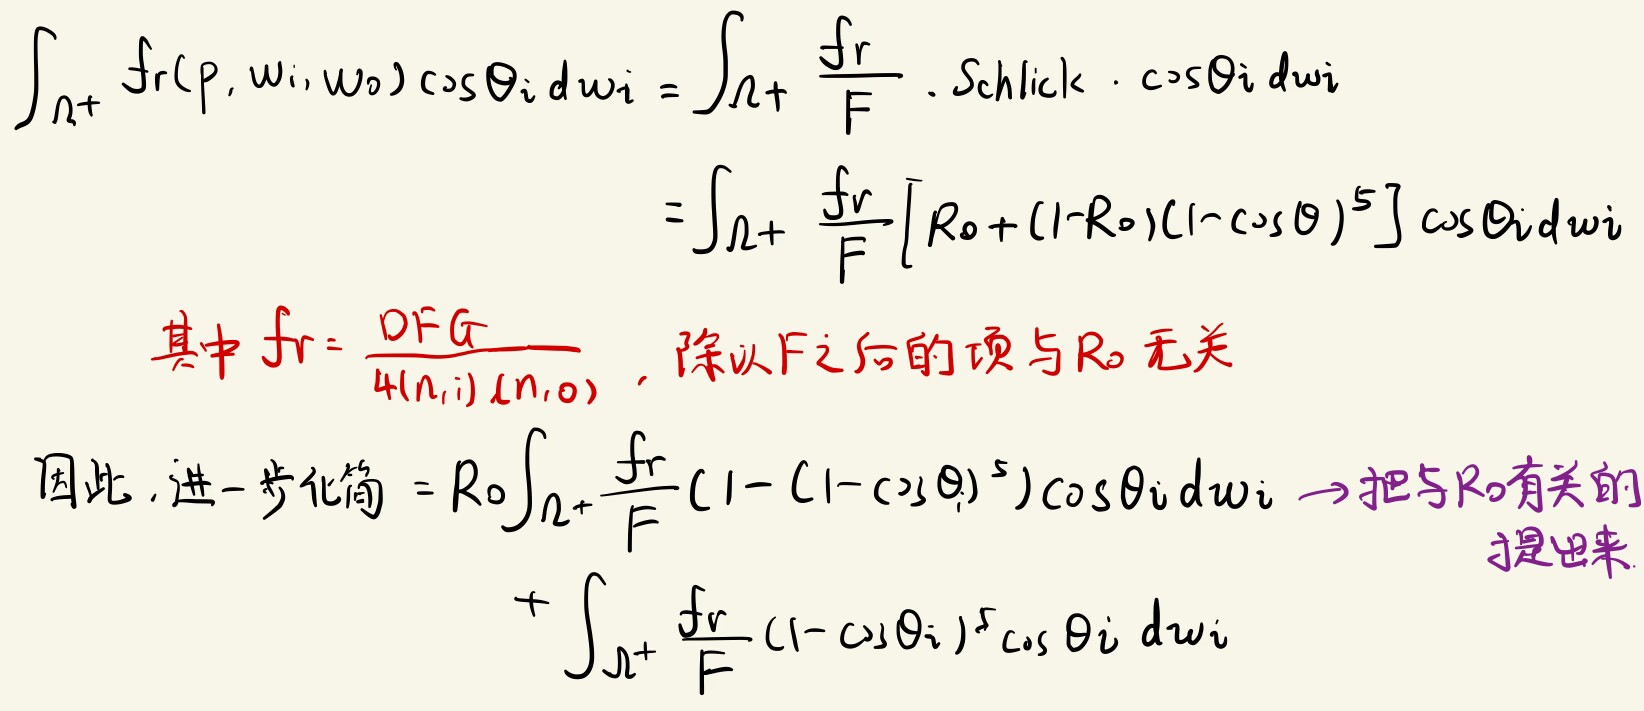 ∫Ω+ fr(p, wi, wo) cosθi dwi = ∫Ω+ fr/F · Schlick · cosθi dwi
= ∫Ω+ fr/F [R0 + (1-R0)(1-cosθ)^5] cosθi dwi
其中 fr = DFG/4(n,i)(n,o) , 除以F之后的项与R0 无关
因此,进一步化简 = R0∫Ω+ fr/F (1-(1-cosθi)^5) cosθi dwi → 把与R0有关的
提出来.
+ ∫Ω+ fr/F (1-cosθi)^5 cosθi dwi